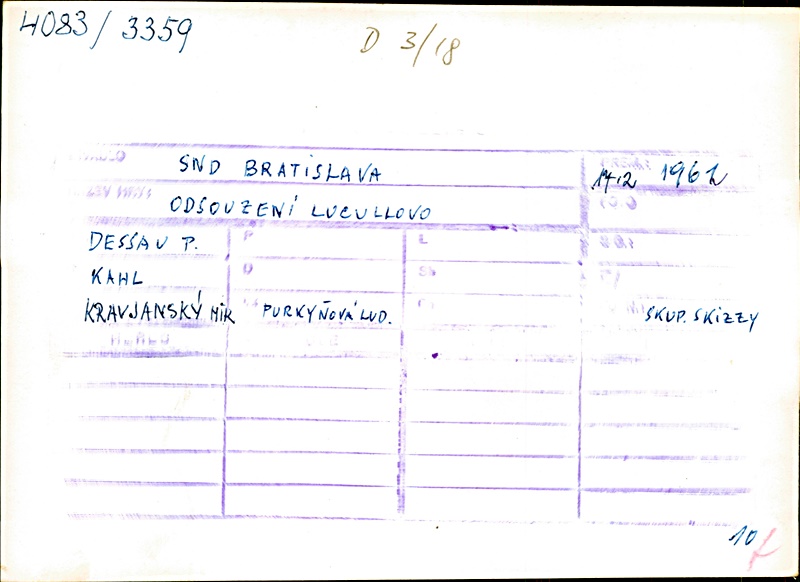 4083/3359
D 3/18
SND BRATISLAVA
1962
ODSOUZENÍ LUCULLOVO
DESSAU P.
P
KAHL
KRAVJANSKÝ MIK
PURKYŇOVÁ LUD.
SKUP. SKIZZY
10